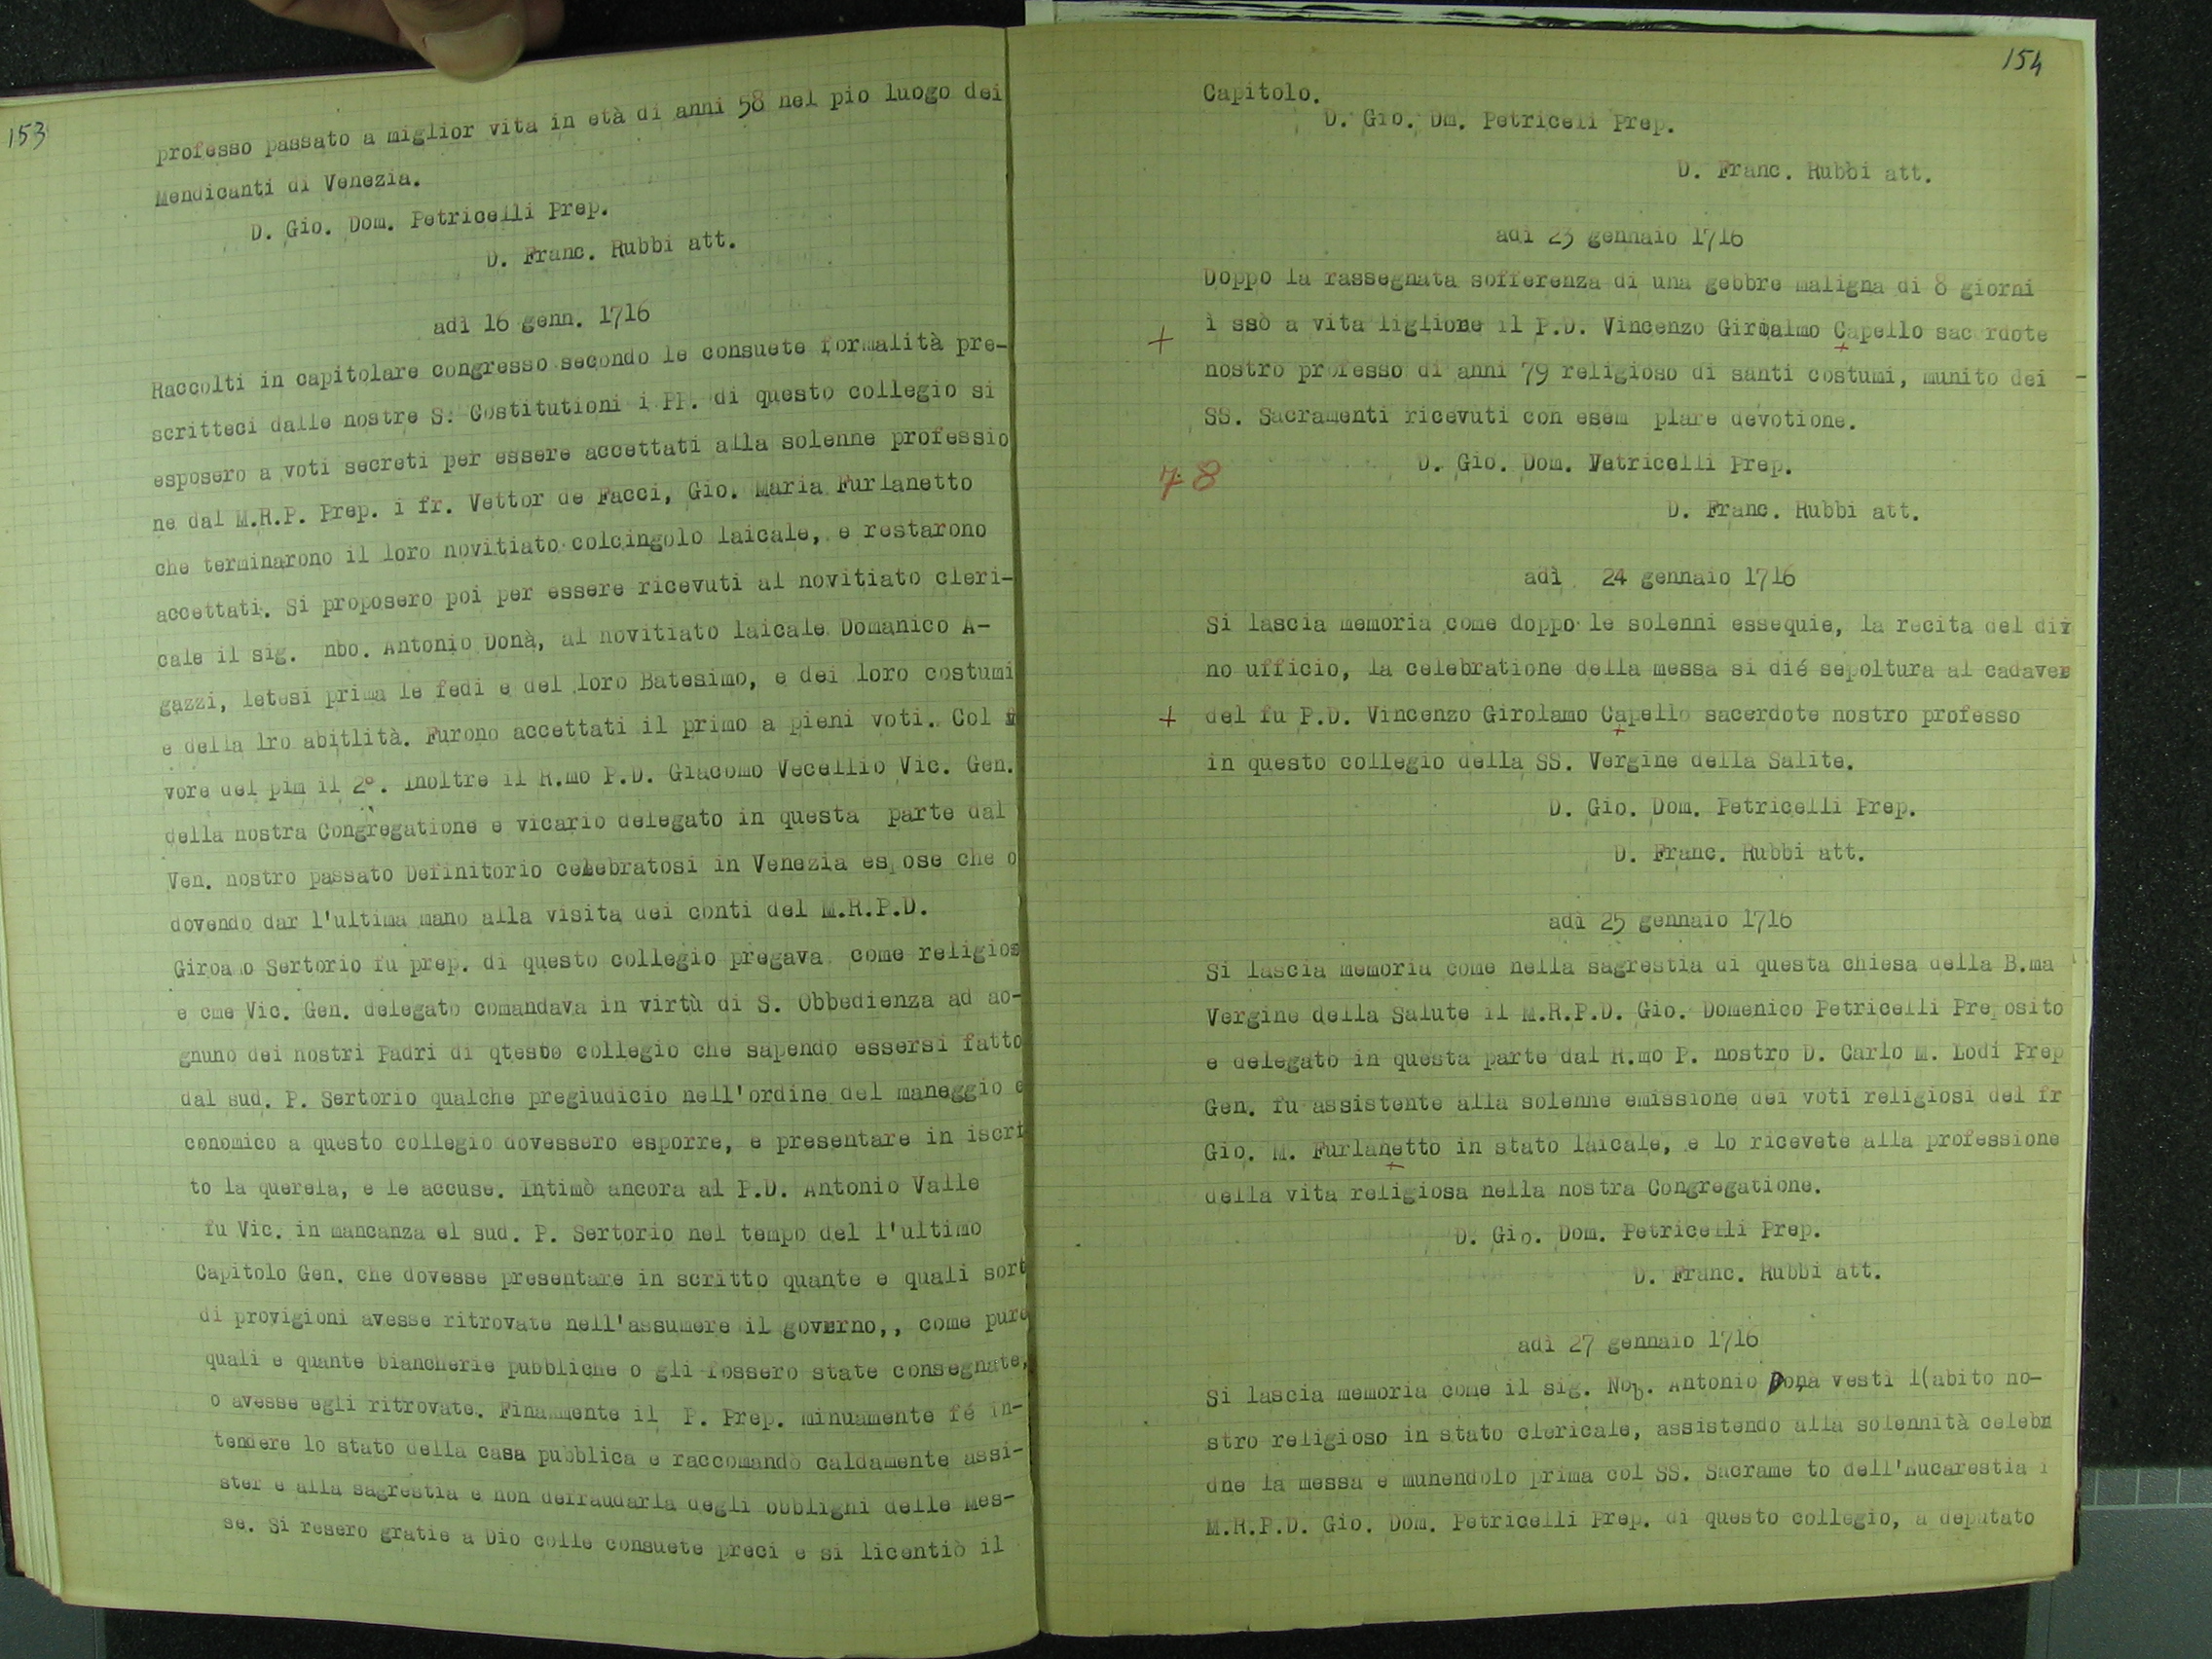 153
professo passato a miglior vita in età di anni 58 nel pio luogo dei
Mendicanti di Venezia.
D. Gio. Dom. Petricelli Prep.
D. Franc. Rubbi att.
adì 16 genn. 1716
Raccolti in capitolare congresso secondo le consuete formalità pre-
scritteci dalle nostre S. Costitutioni i PP. di questo collegio si
esposero a voti secreti per essere accettati alla solenne professio
ne dal M.R.P. Prep. i fr. Vettor de Facci, Gio. Maria Furlanetto
che terminarono il loro novitiato colcingolo laicale, e restarono
accettati. Si proposero poi per essere ricevuti al novitiato cleri-
cale il sig. nbo. Antonio Donà, al novitiato laicale Domanico A-
gazzi, letesi prima le fedi e del loro Batesimo, e dei loro costumi
e della lro abitlità. Furono accettati il primo a pieni voti. Col
vore del pim il 2°. Inoltre il R.mo P.D. Giacomo Vecellio Vic. Gen.
della nostra Congregatione e vicario delegato in questa parte dal
Ven. nostro passato Definitorio celebratosi in Venezia es ose che o
dovendo dar l'ultima mano alla visita dei conti del M.R.P.D.
Giroa o Sertorio fu prep. di questo collegio pregava come religios
e cme Vic. Gen. delegato comandava in virtù di S. Obbedienza ad ao-
gnuno dei nostri Padri di qtesto collegio che sapendo essersi fatto
dal sud. P. Sertorio qualche pregiudicio nell'ordine del maneggio e
conomico a questo collegio dovessero esporre, e presentare in iscri
to la querela, e le accuse. Intimò ancora al P.D. Antonio Valle
fu Vic. in mancanza el sud. P. Sertorio nel tempo del l'ultimo
Capitolo Gen. che dovesse presentare in scritto quante e quali sort
di provigioni avesse ritrovate nell'assumere il governo,, come pure
quali e quante biancherie pubbliche o gli fossero state consegnate,
o avesse egli ritrovate. Finalmente il P. Prep. minuamente fé in-
tendere lo stato della casa pubblica e raccomandò caldamente assi-
ster e alla sagrestia e non defraudarla degli obblighi delle Mes-
se. Si resero gratie a Dio colle consuete preci e si licentiò il
154
Capitolo.
D. Gio. Dm. Petriceli Prep.
D. Franc. Rubbi att.
adì 23 gennaio 1716
Doppo la rassegnata sofferenza di una gebbre maligna di 8 giorni
+ ì ssò a vita liglione il P.D. Vincenzo Giroalmo Capello sac rdote
nostro professo di anni 79 religioso di santi costumi, munito dei -
SS. Sacramenti ricevuti con esem plare devotione.
78 D. Gio. Dom. Vetricelli Prep.
D. Franc. Rubbi att.
adì 24 gennaio 1716
Si lascia memoria come doppo le solenni essequie, la recita del di
no ufficio, la celebratione della messa si dié sepoltura al cadaver
+ del fu P.D. Vincenzo Girolamo Capello sacerdote nostro professo
in questo collegio della SS. Vergine della Salite.
D. Gio. Dom. Petricelli Prep.
D. Franc. Rubbi att.
adì 25 gennaio 1716
Si lascia memoria come nella sagrestia di questa chiesa della B.ma
Vergine della Salute il M.R.P.D. Gio. Domenico Petricelli Pre osito
e delegato in questa parte dal R.mo P. nostro D. Carlo M. Lodi Prep
Gen. fu assistente alla solenne emissione dei voti religiosi del fr
Gio. M. Furlanetto in stato laicale, e lo ricevete alla professione
della vita religiosa nella nostra Congregatione.
D. Gio. Dom. Petricelli Prep.
D. Franc. Rubbi att.
adì 27 gennaio 1716
Si lascia memoria come il sig. Nob. Antonio Donà vestì l(abito no-
stro religioso in stato clericale, assistendo alla solennità celebr
dne la messa e munendolo prima col SS. Sacrame to dell'Eucarestia i
M.R.P.D. Gio. Dom. Petricelli Prep. di questo collegio, a deputato